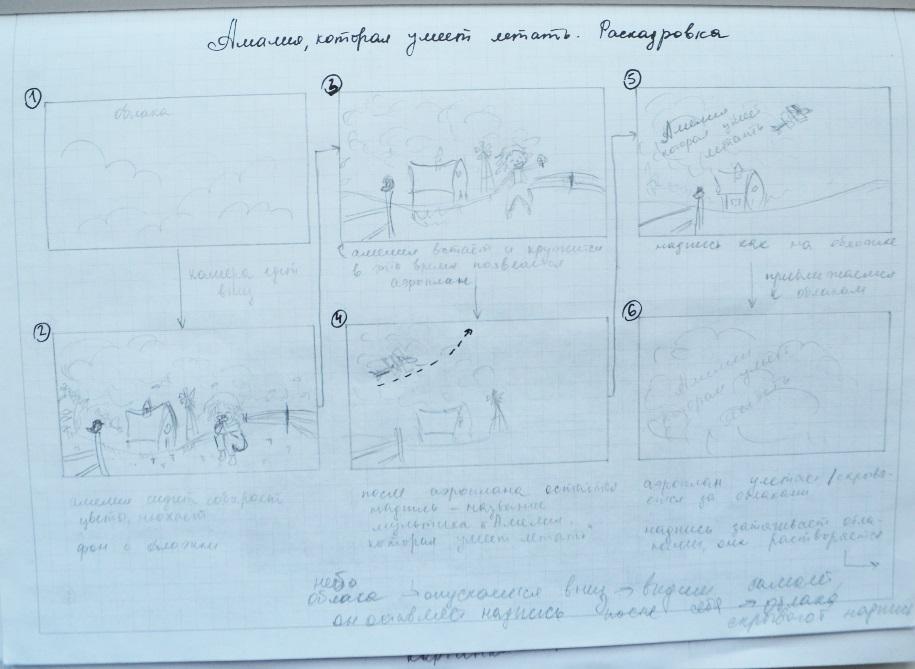 Амалия, которая умеет летать. Раскадровка
1
облака
камера едет
вниз
2
амелия сидит собирает
цветы, нюхает
фон с обложки
3
амелия встаёт и кружится
в это время появляется
аэроплан
4
после аэроплана остаётся
надпись - название
мультика "Амелия,
которая умеет летать"
5
Амелия
которая умеет
летать
надпись как на обложке
приближаемся
к облакам
6
Амелия
которая умеет
летать
аэроплан улетает/скрыва-
ется за облаками
надпись затягивает обла-
ками, она растворяется
небо
облака → опускаемся вниз → видим самолёт,
он оставляет надпись после себя → облака
скрывают надпись